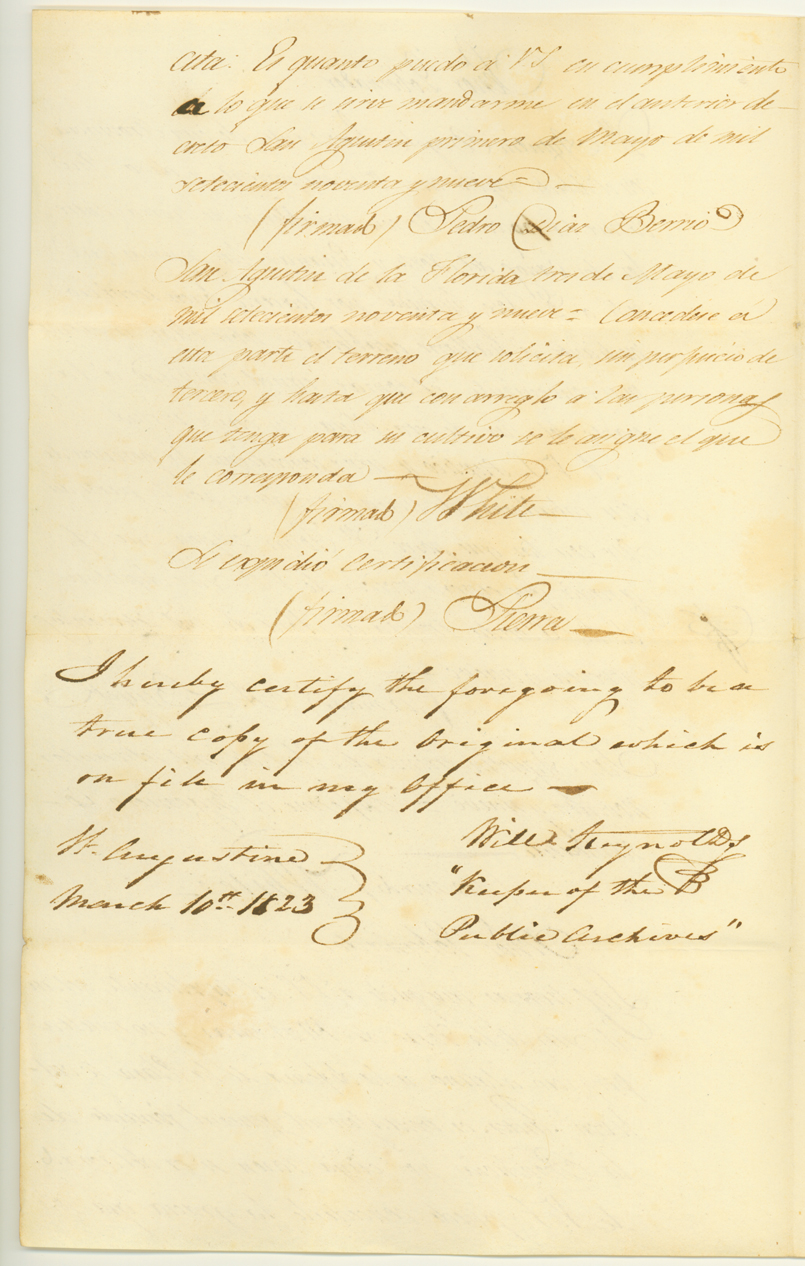 cita: Es quanto puedo á VS en cumplimiento
á lo que se sirve mandarme en el anterior de-
creto San Agustin primero de Mayo de mil
setecientos noventa y nueve =
(firmad) Pedro Diaz Berrio
San Agustin de la Florida tres de Mayo de
mil setecientos noventa y nueve = Concedese á
esta parte el terreno que solicita, sin perjuicio de
tercero, y hasta que con arreglo á las personas
que tenga para su cultivo se le asigne el que
le corresponda —
(firmad) White —
Se expidió Certificacion —
(firmad) Pierra —
I hereby certify the foregoing to be a
true copy of the Original which is
on file in my Office —
St. Augustine
March 10th 1823
Will Reynolds
"Keeper of the
Public Archives"